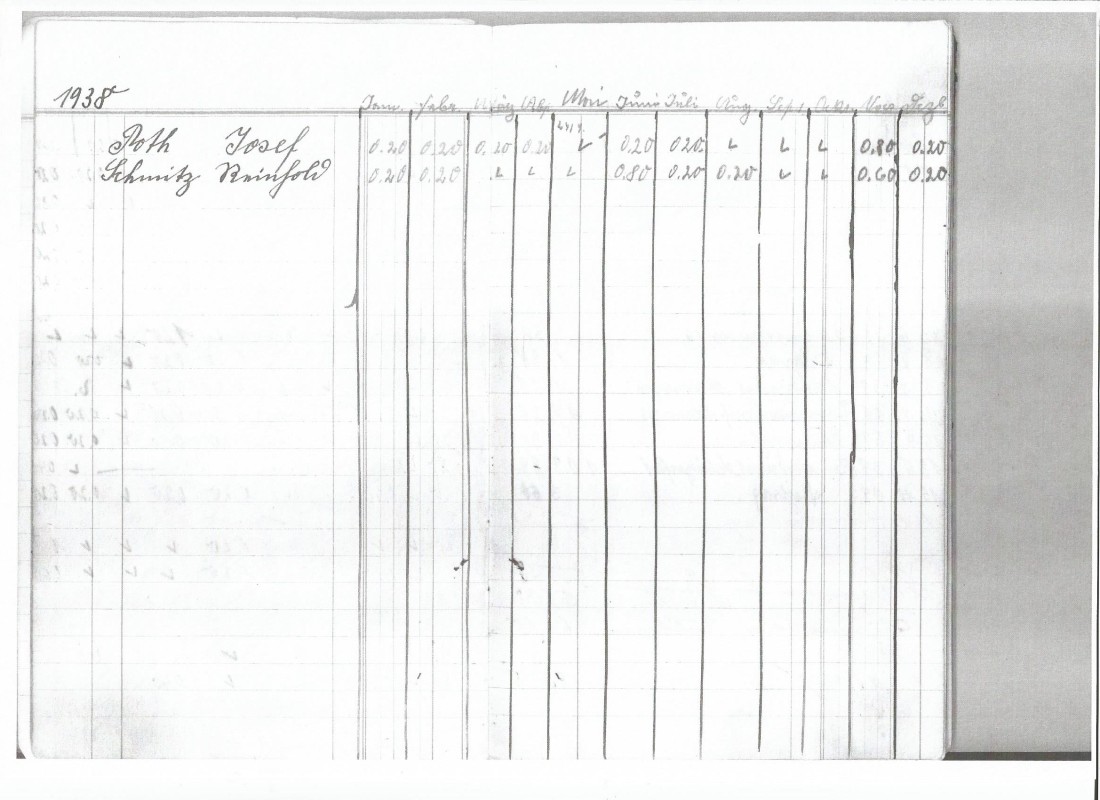 1938 Jan. Febr. März Ap. Mai Juni Juli Aug. Sept. Okt. Nov. Dezb.
Roth Josef 0.20 0.20 0.20 0.20 L 0.20 0.20 L L L 0.80 0.20
Schmitz Reinhold 0.20 0.20 L L L 0.80 0.20 0.20 L L 0.60 0.20